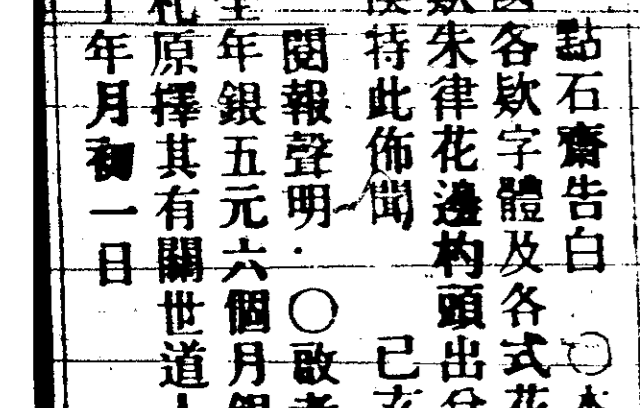 點石齋告白 〇本
各欵字體及各式花
欵朱律花邊构頭出
特此佈聞 已
閱報聲明·〇啟者
年銀五元六個月銀
札原擇其有關世道人
年月初一日